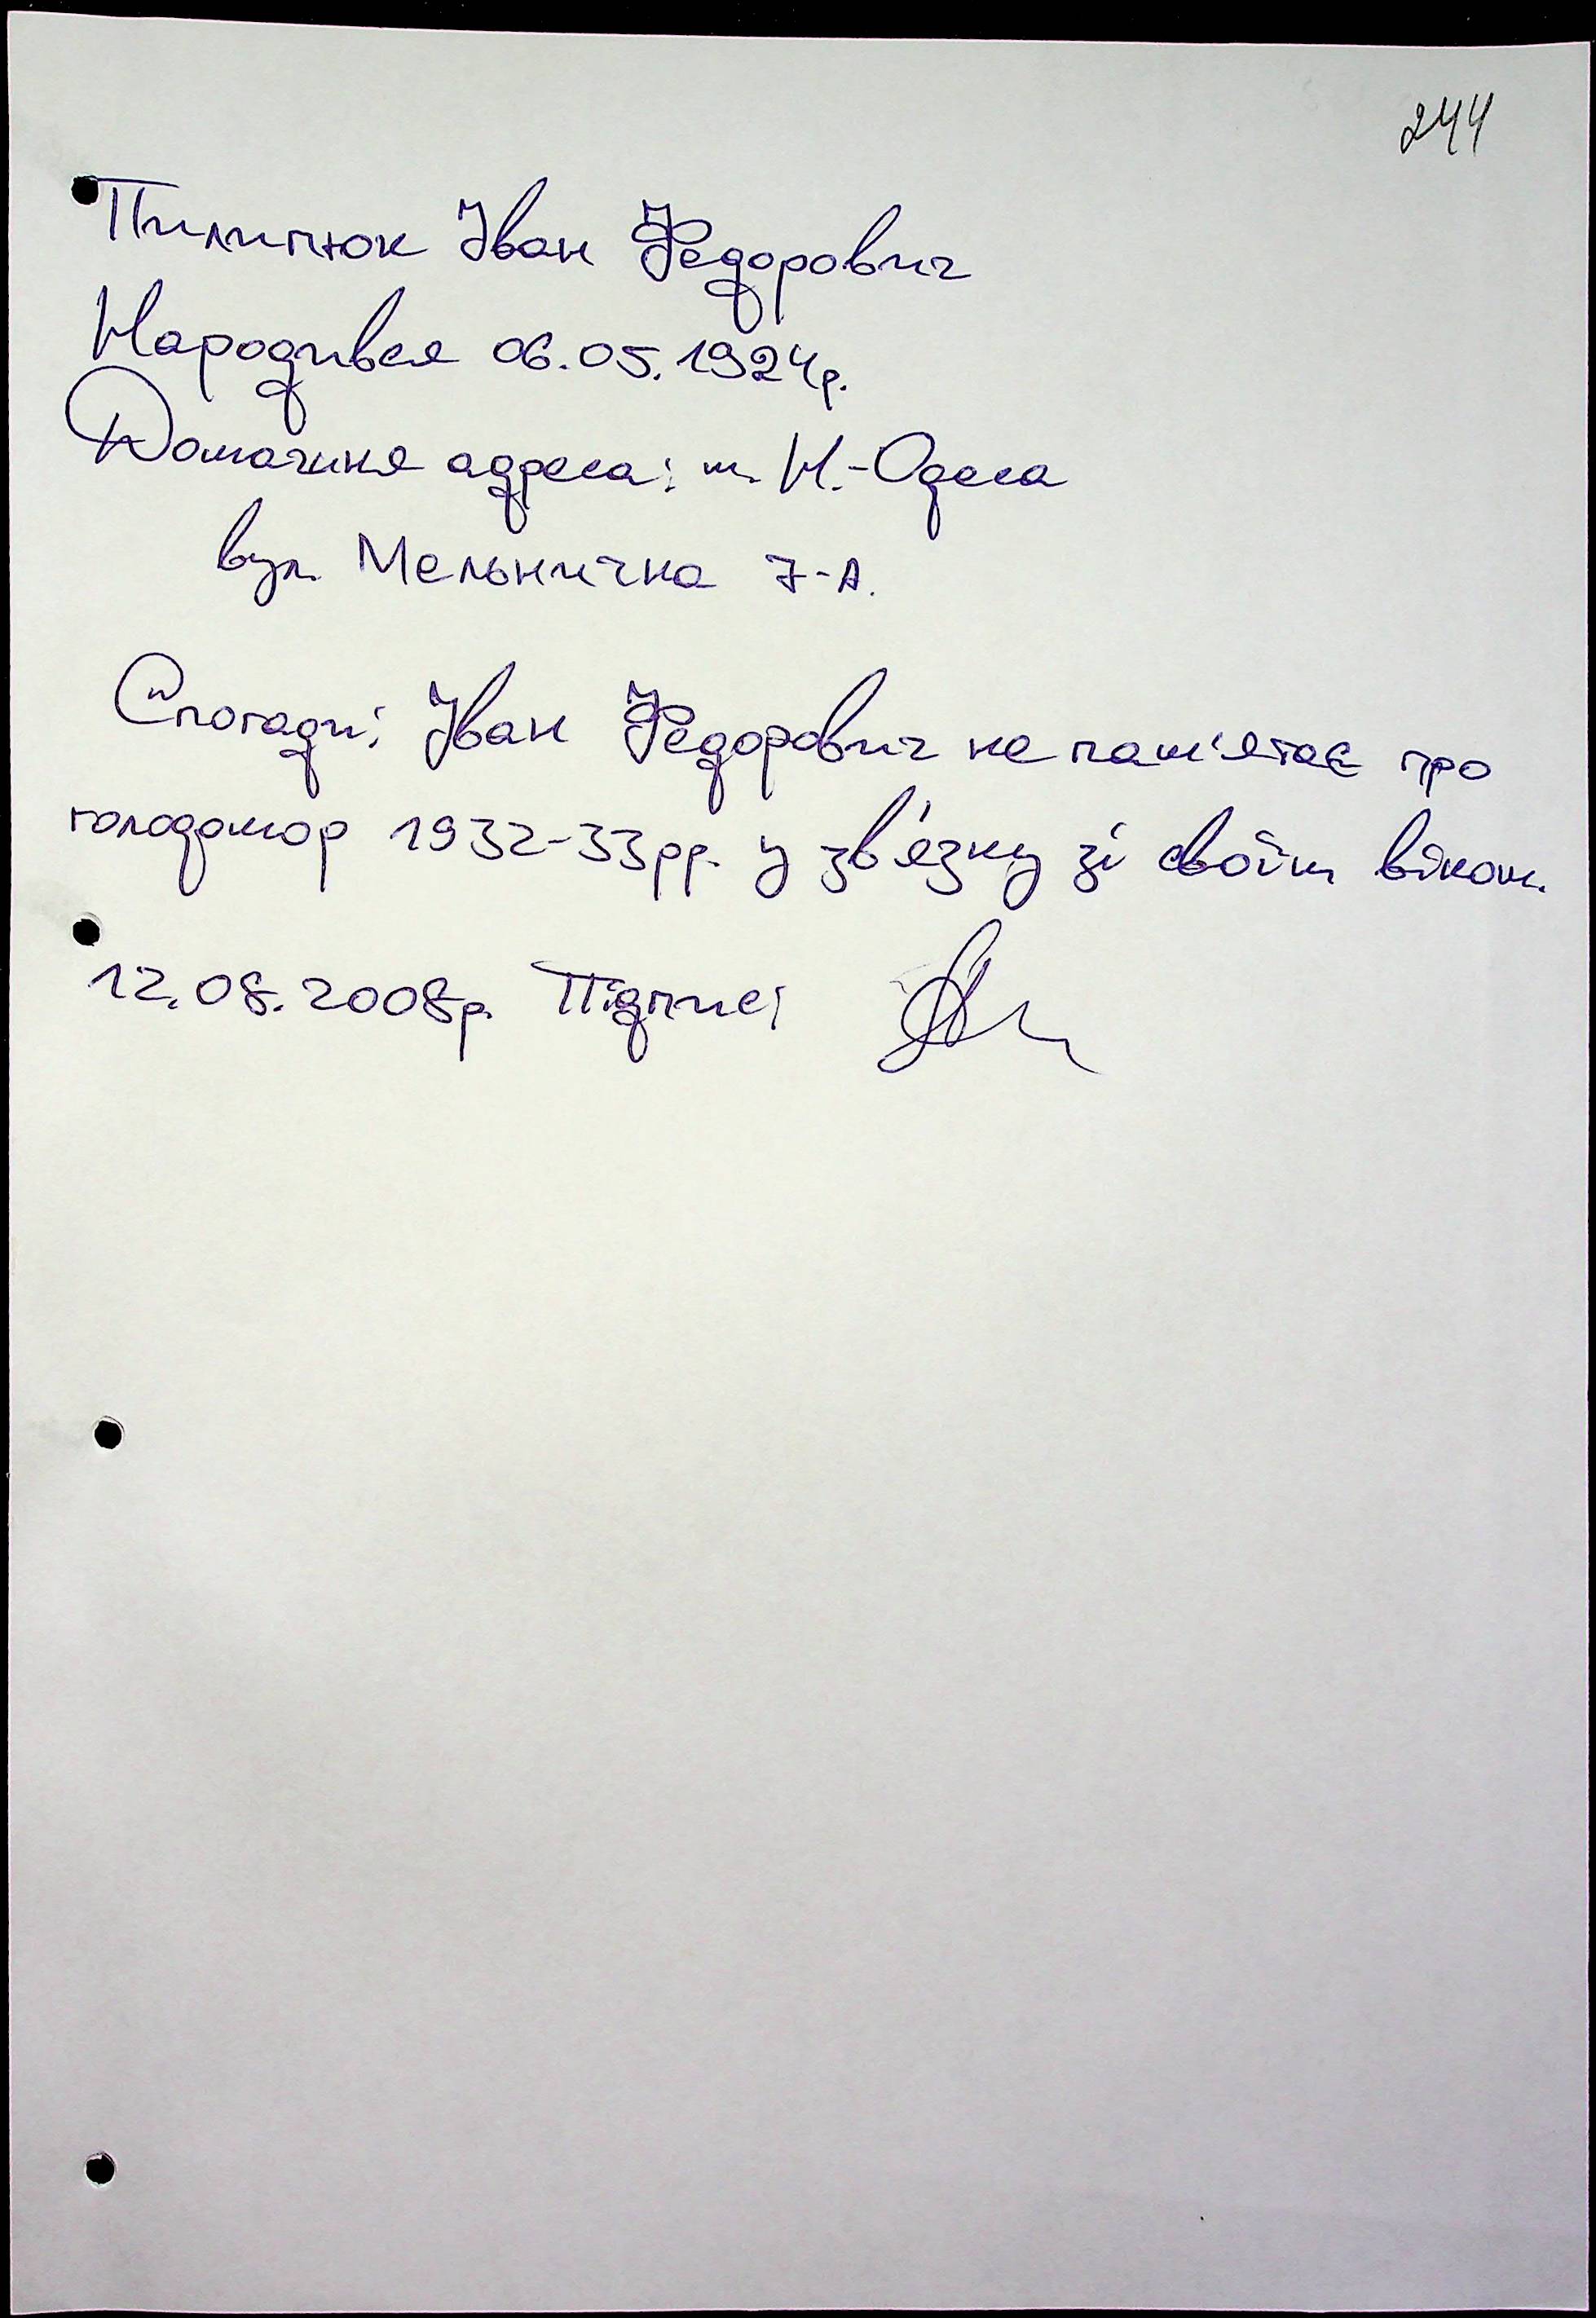 244
Пилипюк Іван Федорович
Народився 06.05.1924р.
Домашня адреса: м. Н.-Одеса
вул. Мельнична 7-А.
Спогади: Іван Федорович не пам'ятає про
голодомор 1932-33рр. у зв'язку зі своїм віком.
12.08.2008р. Підпис: